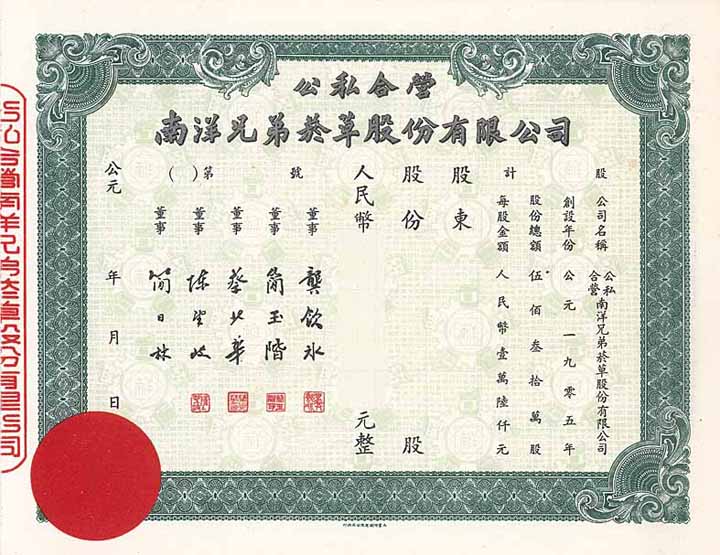 公私合營
南洋兄弟菸草股份有限公司
公司名稱 公私合營南洋兄弟菸草股份有限公司
創設年份 公元一九零五年
股份總額 伍佰叁拾萬股
每股金額 人民幣壹萬陸仟元
股
計
股東
股份 股
人民幣 元整
( )第 號
董事 龔飲冰
董事 簡玉階
董事
董事
董事 簡日林
公元 年 月 日